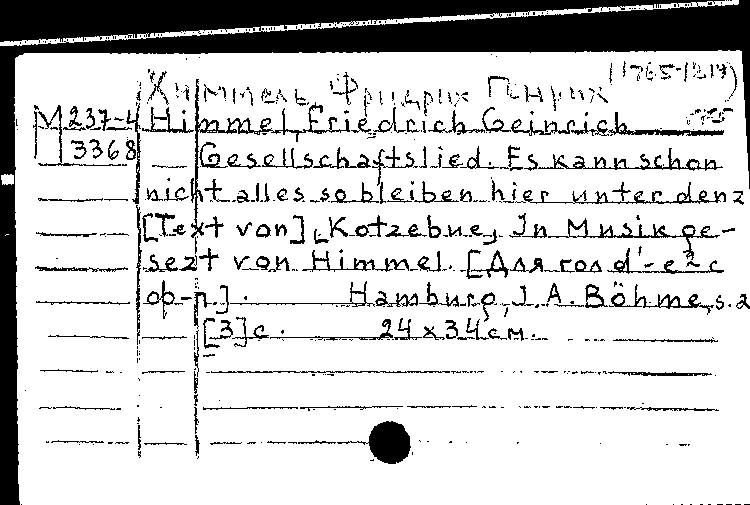 Химмель Фридрих Генрих (1765-1814)
М 237-4 Himmel, Friedrich Geinrich
3368 — Gesellschaftslied. Es kann schon
nicht alles so bleiben hier unter denz
[Text von] Kotzebue, In Musik ge-
sezt von Himmel. [Для гол d'-e² с
ф-п.]. Hamburg, J. A. Böhme, s. a
[3] с. 24 x 34 см.